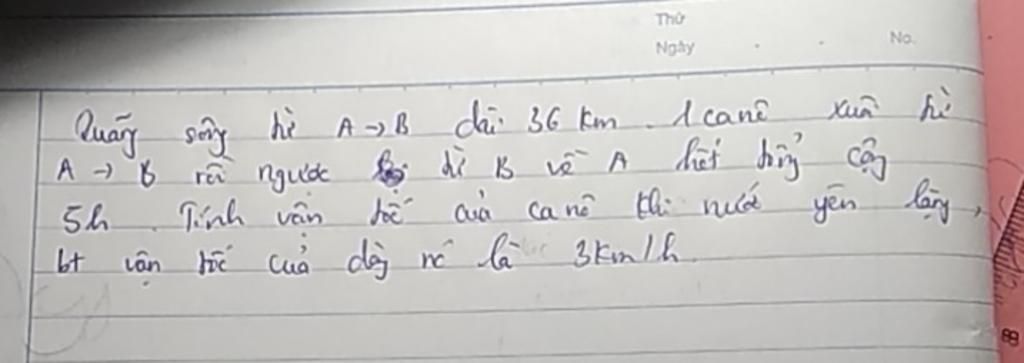 Thứ
Ngày . . No.
Quãng sông từ A → B dài 36 km. 1 canô xuôi từ
A → B rồi ngược từ B về A hết tổng cộng
5h. Tính vận tốc của canô khi nước yên lặng,
bt vận tốc của dòng nc là 3km/h.